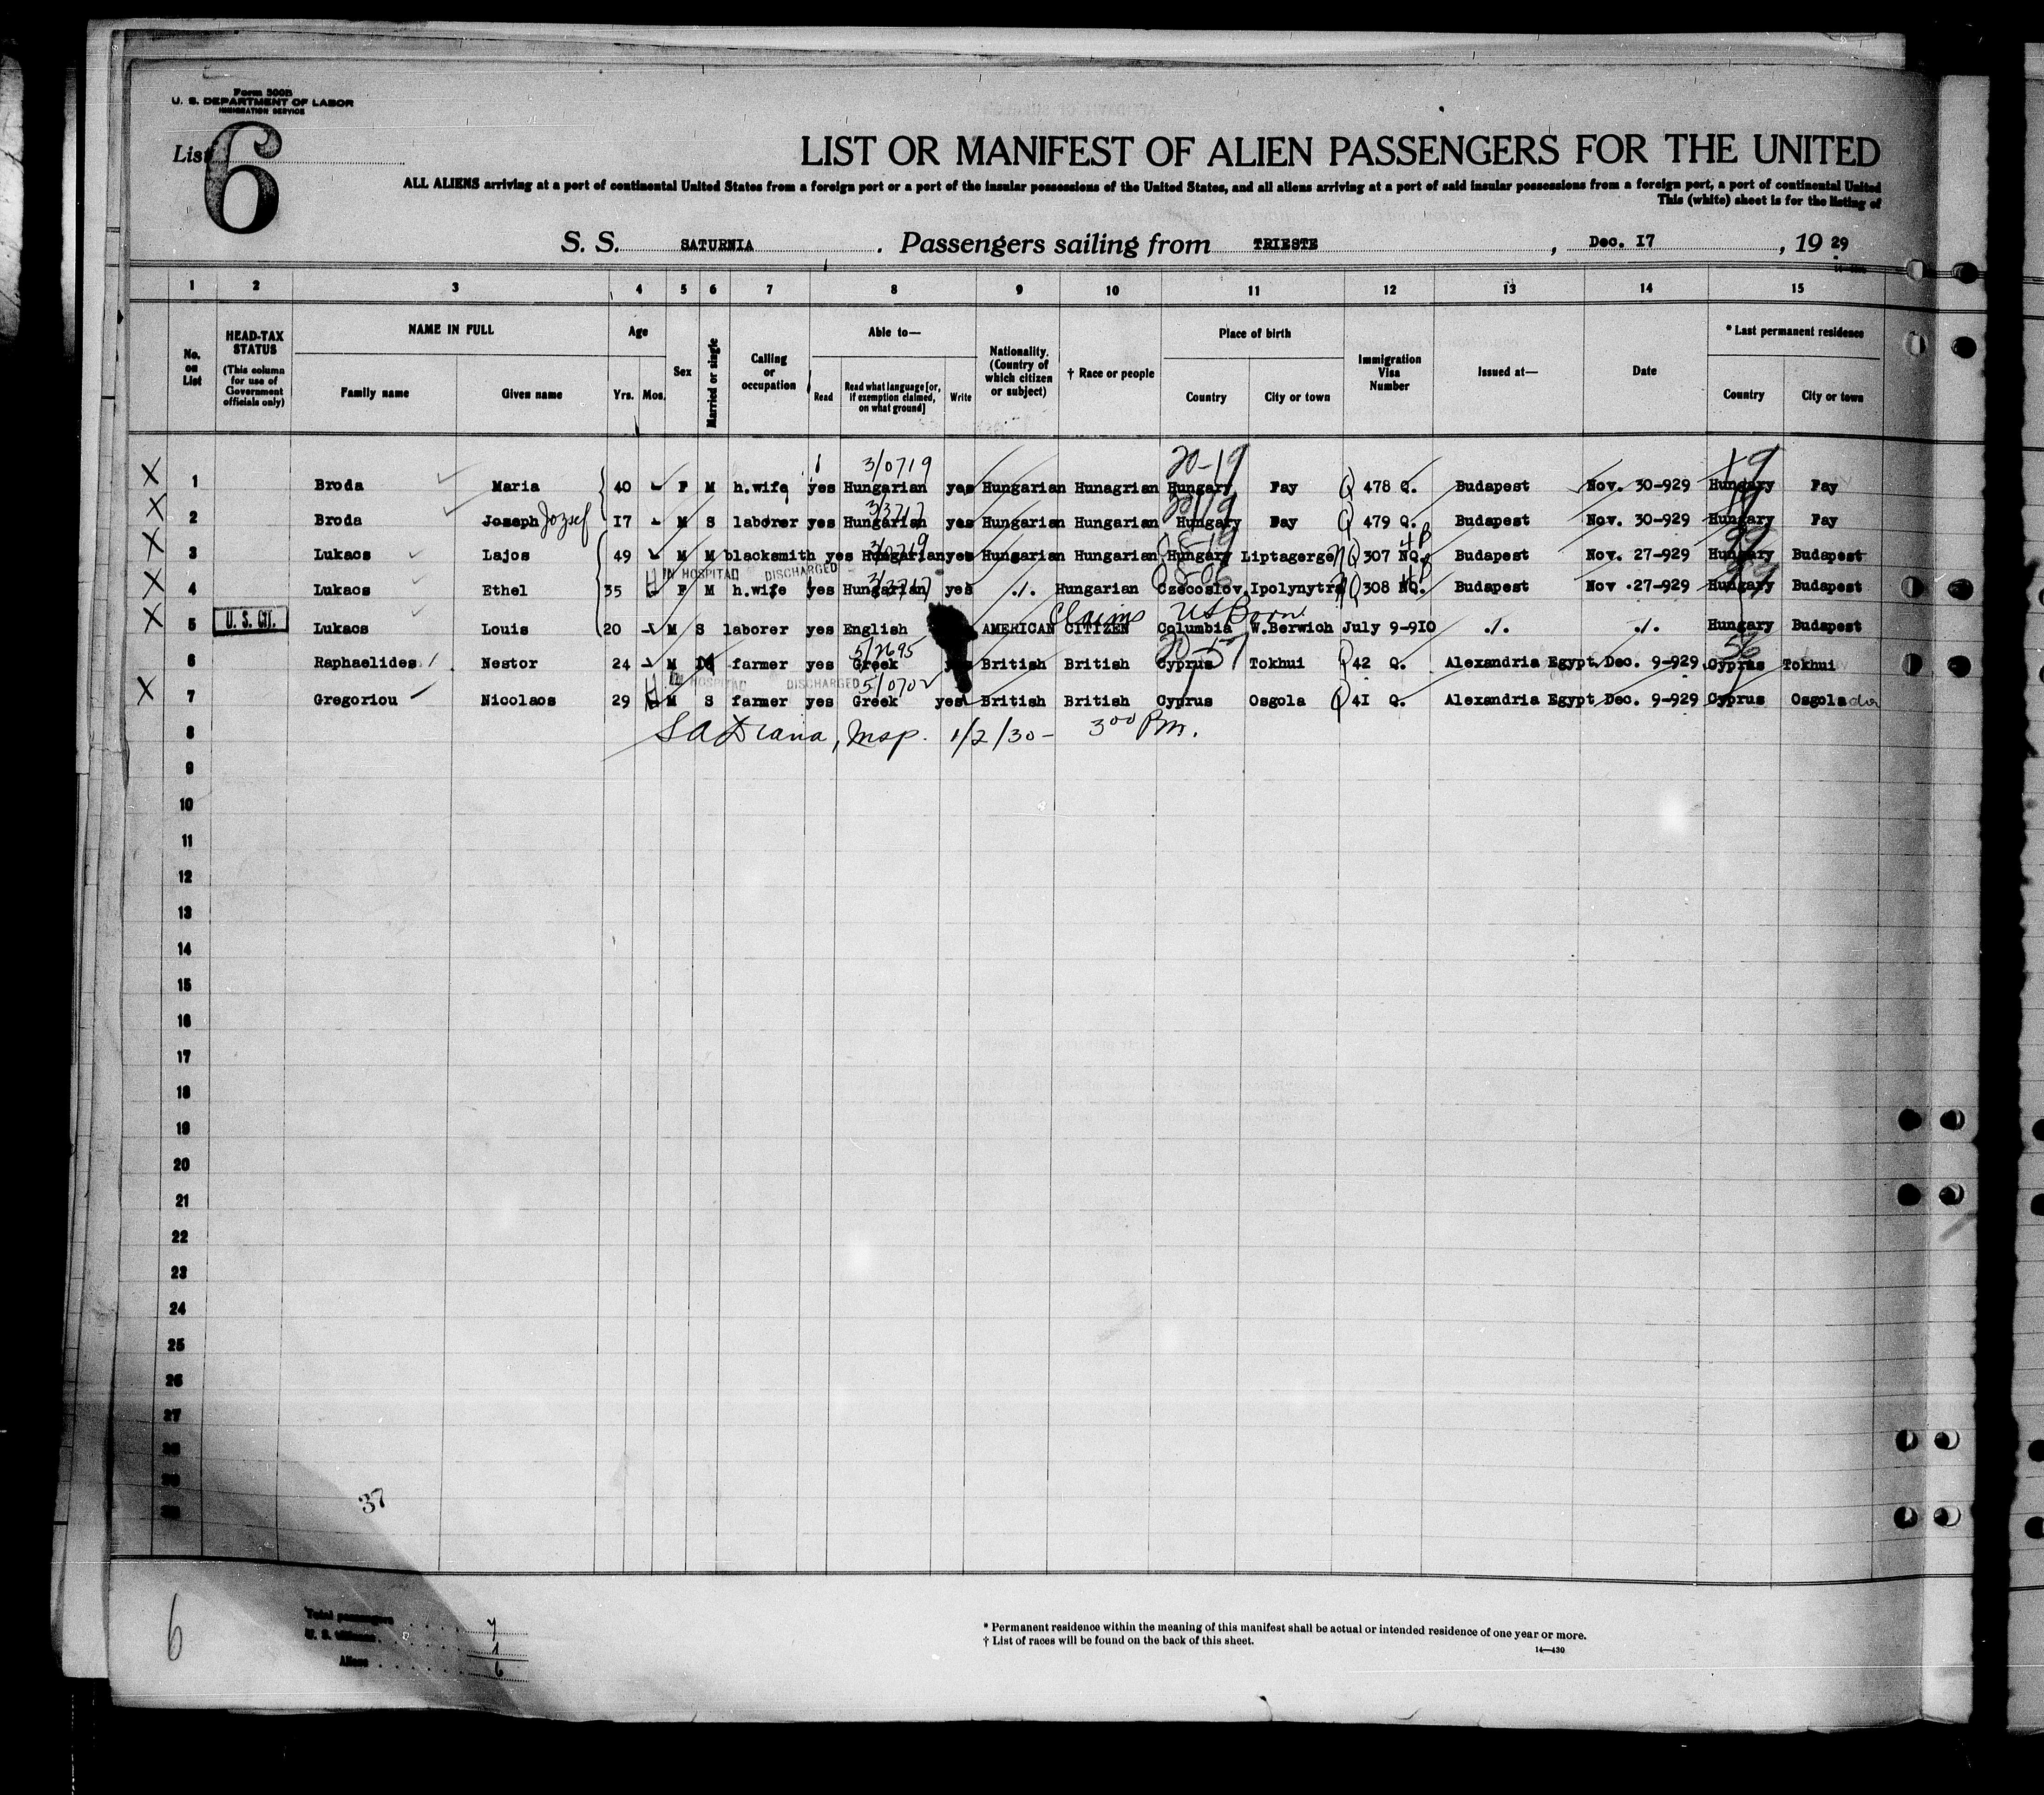 Form 500B
U. S. DEPARTMENT OF LABOR
IMMIGRATION SERVICE
List 6
LIST OR MANIFEST OF ALIEN PASSENGERS FOR THE UNITED
ALL ALIENS arriving at a port of continental United States from a foreign port or a port of the insular possessions of the United States, and all aliens arriving at a port of said insular possessions from a foreign port, a port of continental United
This (white) sheet is for the listing of
S. S. SATURNIA . Passengers sailing from TRIESTE , Dec. 17 , 19 29
1 2 3 4 5 6 7 8 9 10 11 12 13 14 15
No. on List
HEAD-TAX STATUS (This column for use of Government officials only)
NAME IN FULL Family name Given name
Age Yrs. Mos.
Sex
Married or single
Calling or occupation
Able to— Read Read what language [or, if exemption claimed, on what ground] Write
Nationality. (Country of which citizen or subject)
† Race or people
Place of birth Country City or town
Immigration Visa Number
Issued at—
Date
* Last permanent residence Country City or town
3/0719 20-19 19
X 1 Broda Maria 40 F M h.wife yes Hungarian yes Hungarian Hunagrian Hungary Pay Q 478 Q. Budapest Nov. 30-929 Hungary Pay
X 2 Broda Joseph Jozsef 17 M S laborer yes Hungarian yes Hungarian Hungarian Hungary Pay Q 479 Q. Budapest Nov. 30-929 Hungary Pay
X 3 Lukacs Lajos 49 M M blacksmith yes Hungarian yes Hungarian Hungarian Hungary Liptagerge Q 307 NQ. Budapest Nov. 27-929 Hungary Budapest
IN HOSPITAL DISCHARGED
X 4 Lukacs Ethel 35 F M h.wife yes Hungarian yes ./. Hungarian Czecoslov. Ipolynytra Q 308 NQ. Budapest Nov .27-929 Hungary Budapest
Claims US Born
X 5 U. S. CIT. Lukacs Louis 20 M S laborer yes English AMERICAN CITIZEN Columbia W.Berwich July 9-910 ./. ./. Hungary Budapest
5/2695 20-57 56
6 Raphaelides Nestor 24 M farmer yes Greek yes British British Cyprus Tokhui 42 Q. Alexandria Egypt Dec. 9-929 Cyprus Tokhui
IN HOSPITAL DISCHARGED 5/0702
X 7 Gregoriou Nicolaos 29 M S farmer yes Greek yes British British Cyprus Osgola 41 Q. Alexandria Egypt Dec. 9-929 Cyprus Osgola do
8 Insp. 1/2/30- 3 00 Pm.
9
10
11
12
13
14
15
16
17
18
19
20
21
22
23
24
25
26
27
28
29
30
37
6
Total passengers 7
U. S. citizens 1
Aliens 6
* Permanent residence within the meaning of this manifest shall be actual or intended residence of one year or more.
† List of races will be found on the back of this sheet.
14—430